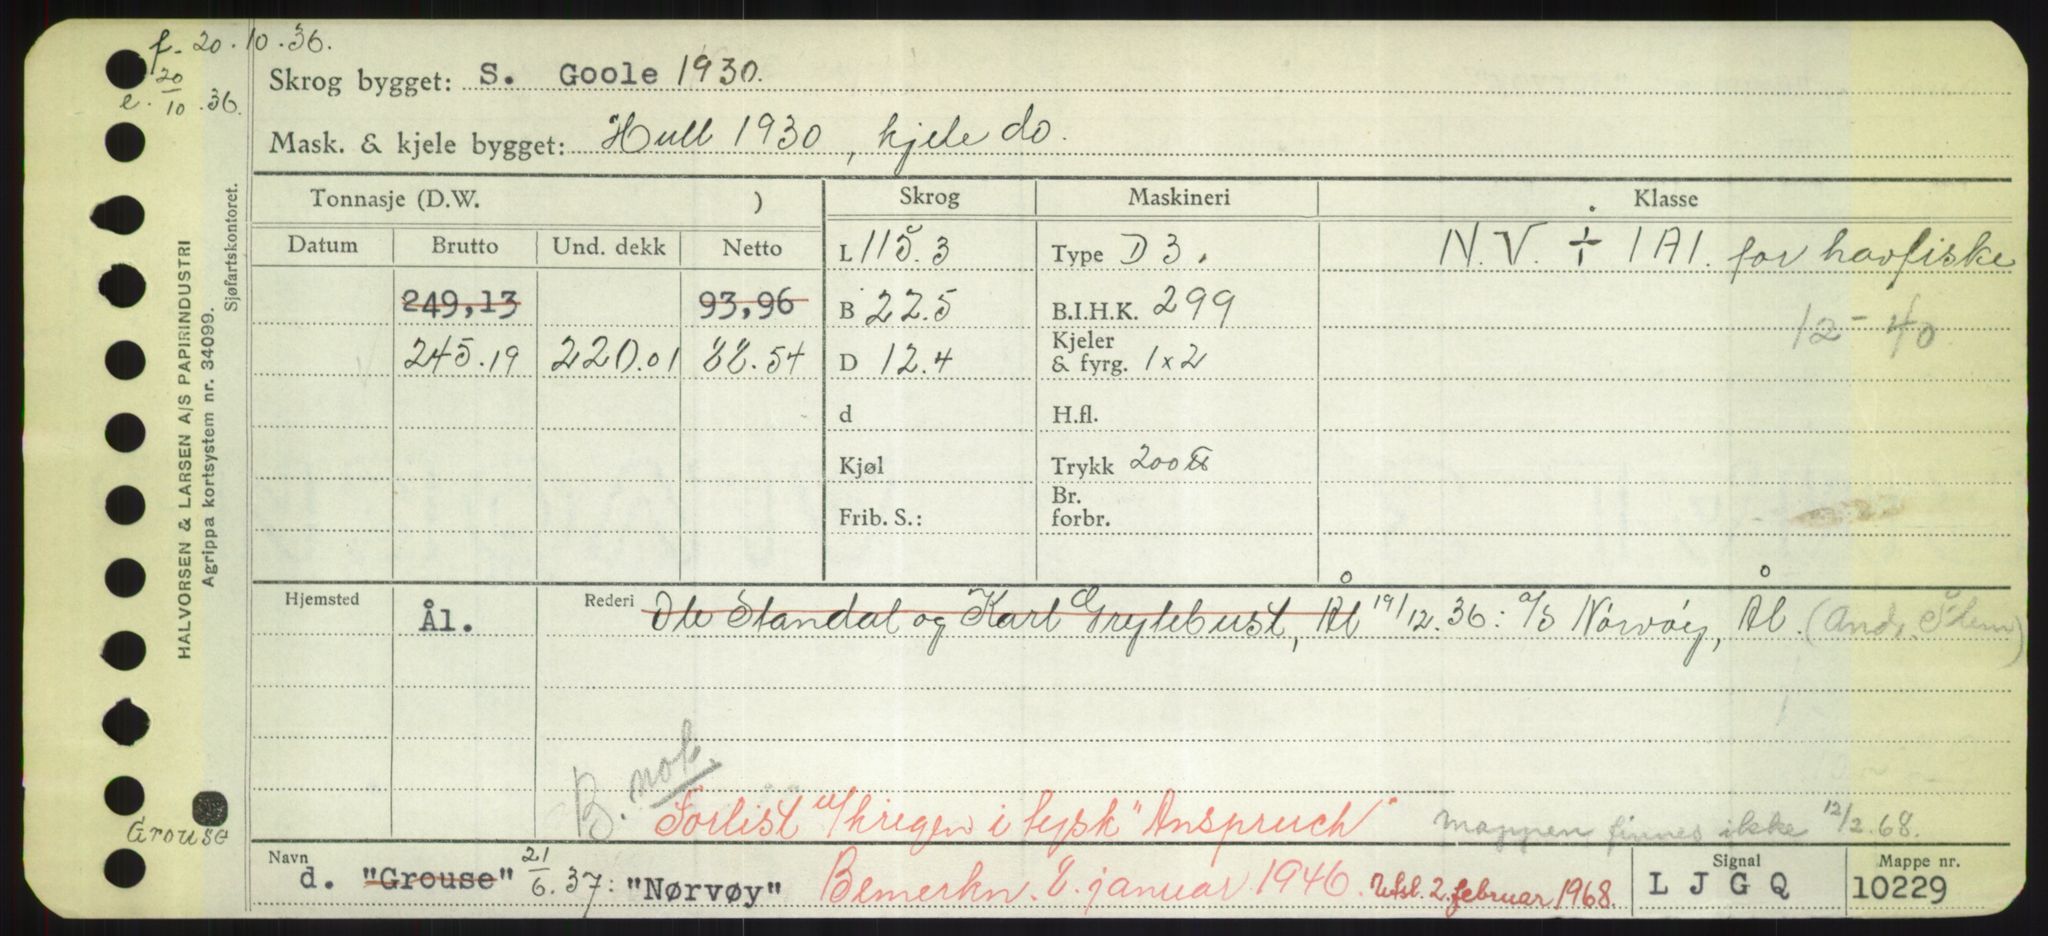 f. 20.10.36.
e. 20/10.36.
Skrog bygget: S. Goole 1930.
Mask. & kjele bygget: Hull 1930, kjele do.
HALVORSEN & LARSEN A/S PAPIRINDUSTRI
Agrippa kortsystem nr. 34099.
Sjøfartskontoret.
Tonnasje (D.W. ) Skrog Maskineri Klasse
Datum Brutto Und. dekk Netto L 115.3 Type D 3. N.V. ÷ 1A1. for havfiske
249,13 93,96 B 22.5 B.I.H.K. 299 12-40
245.19 220.01 88.54 D 12.4 Kjeler & fyrg. 1x2
d H.fl.
Kjøl Trykk 200 ℔
Frib. S.: Br. forbr.
Hjemsted Ål. Rederi Ole Standal og Karl Grytebust, Ål 19/12.36: A/S Nørvøy, Ål. (And.
B. nok.
Forlist u/krigen i tysk "Anspruch" Mappen finnes ikke 12/2.68.
Grouse
Navn d. "Grouse" 21/6.37: "Nørvøy" Bemerkn. 8. januar 1946. Utsl. 2. februar 1968. Signal L J G Q Mappe nr. 10229